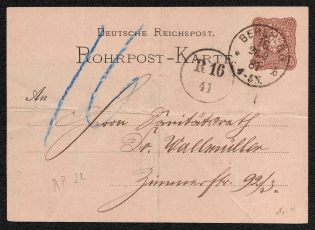 DEUTSCHE REICHSPOST.
ROHRPOST-KARTE.
R 16
41
An
Herrn Sanitätsrath
Dr. Wallmüller
Zimmerstr. 92/3.
RP 22